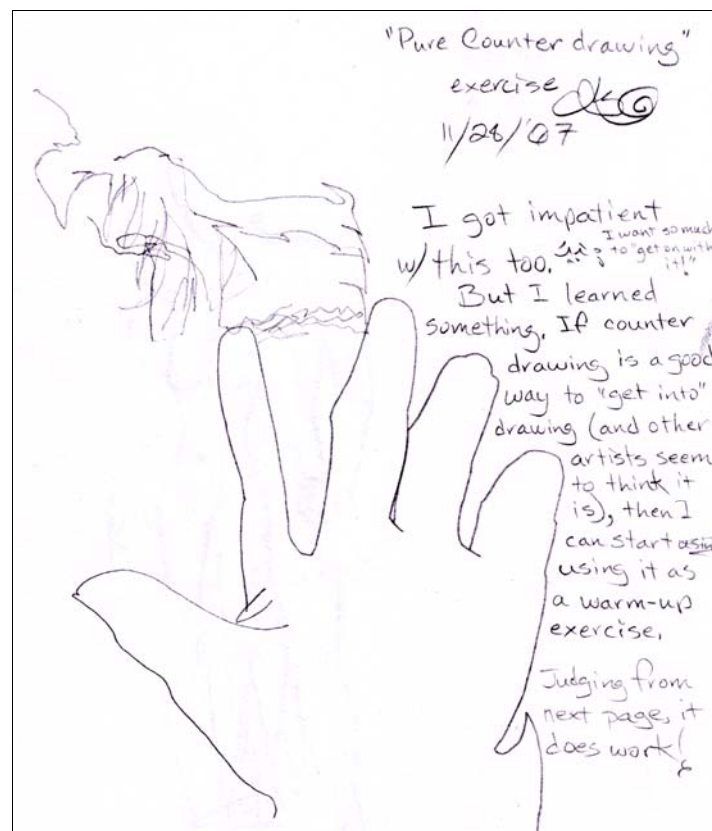 "Pure Counter drawing"
exercise
11/28/07
I got impatient
w/ this too.
I want so much
to "get on with
it!"
But I learned
something. If counter
drawing is a good
way to "get into"
drawing (and other
artists seem
to think it
is), then I
can start
using it as
a warm-up
exercise.
Judging from
next page, it
does work!